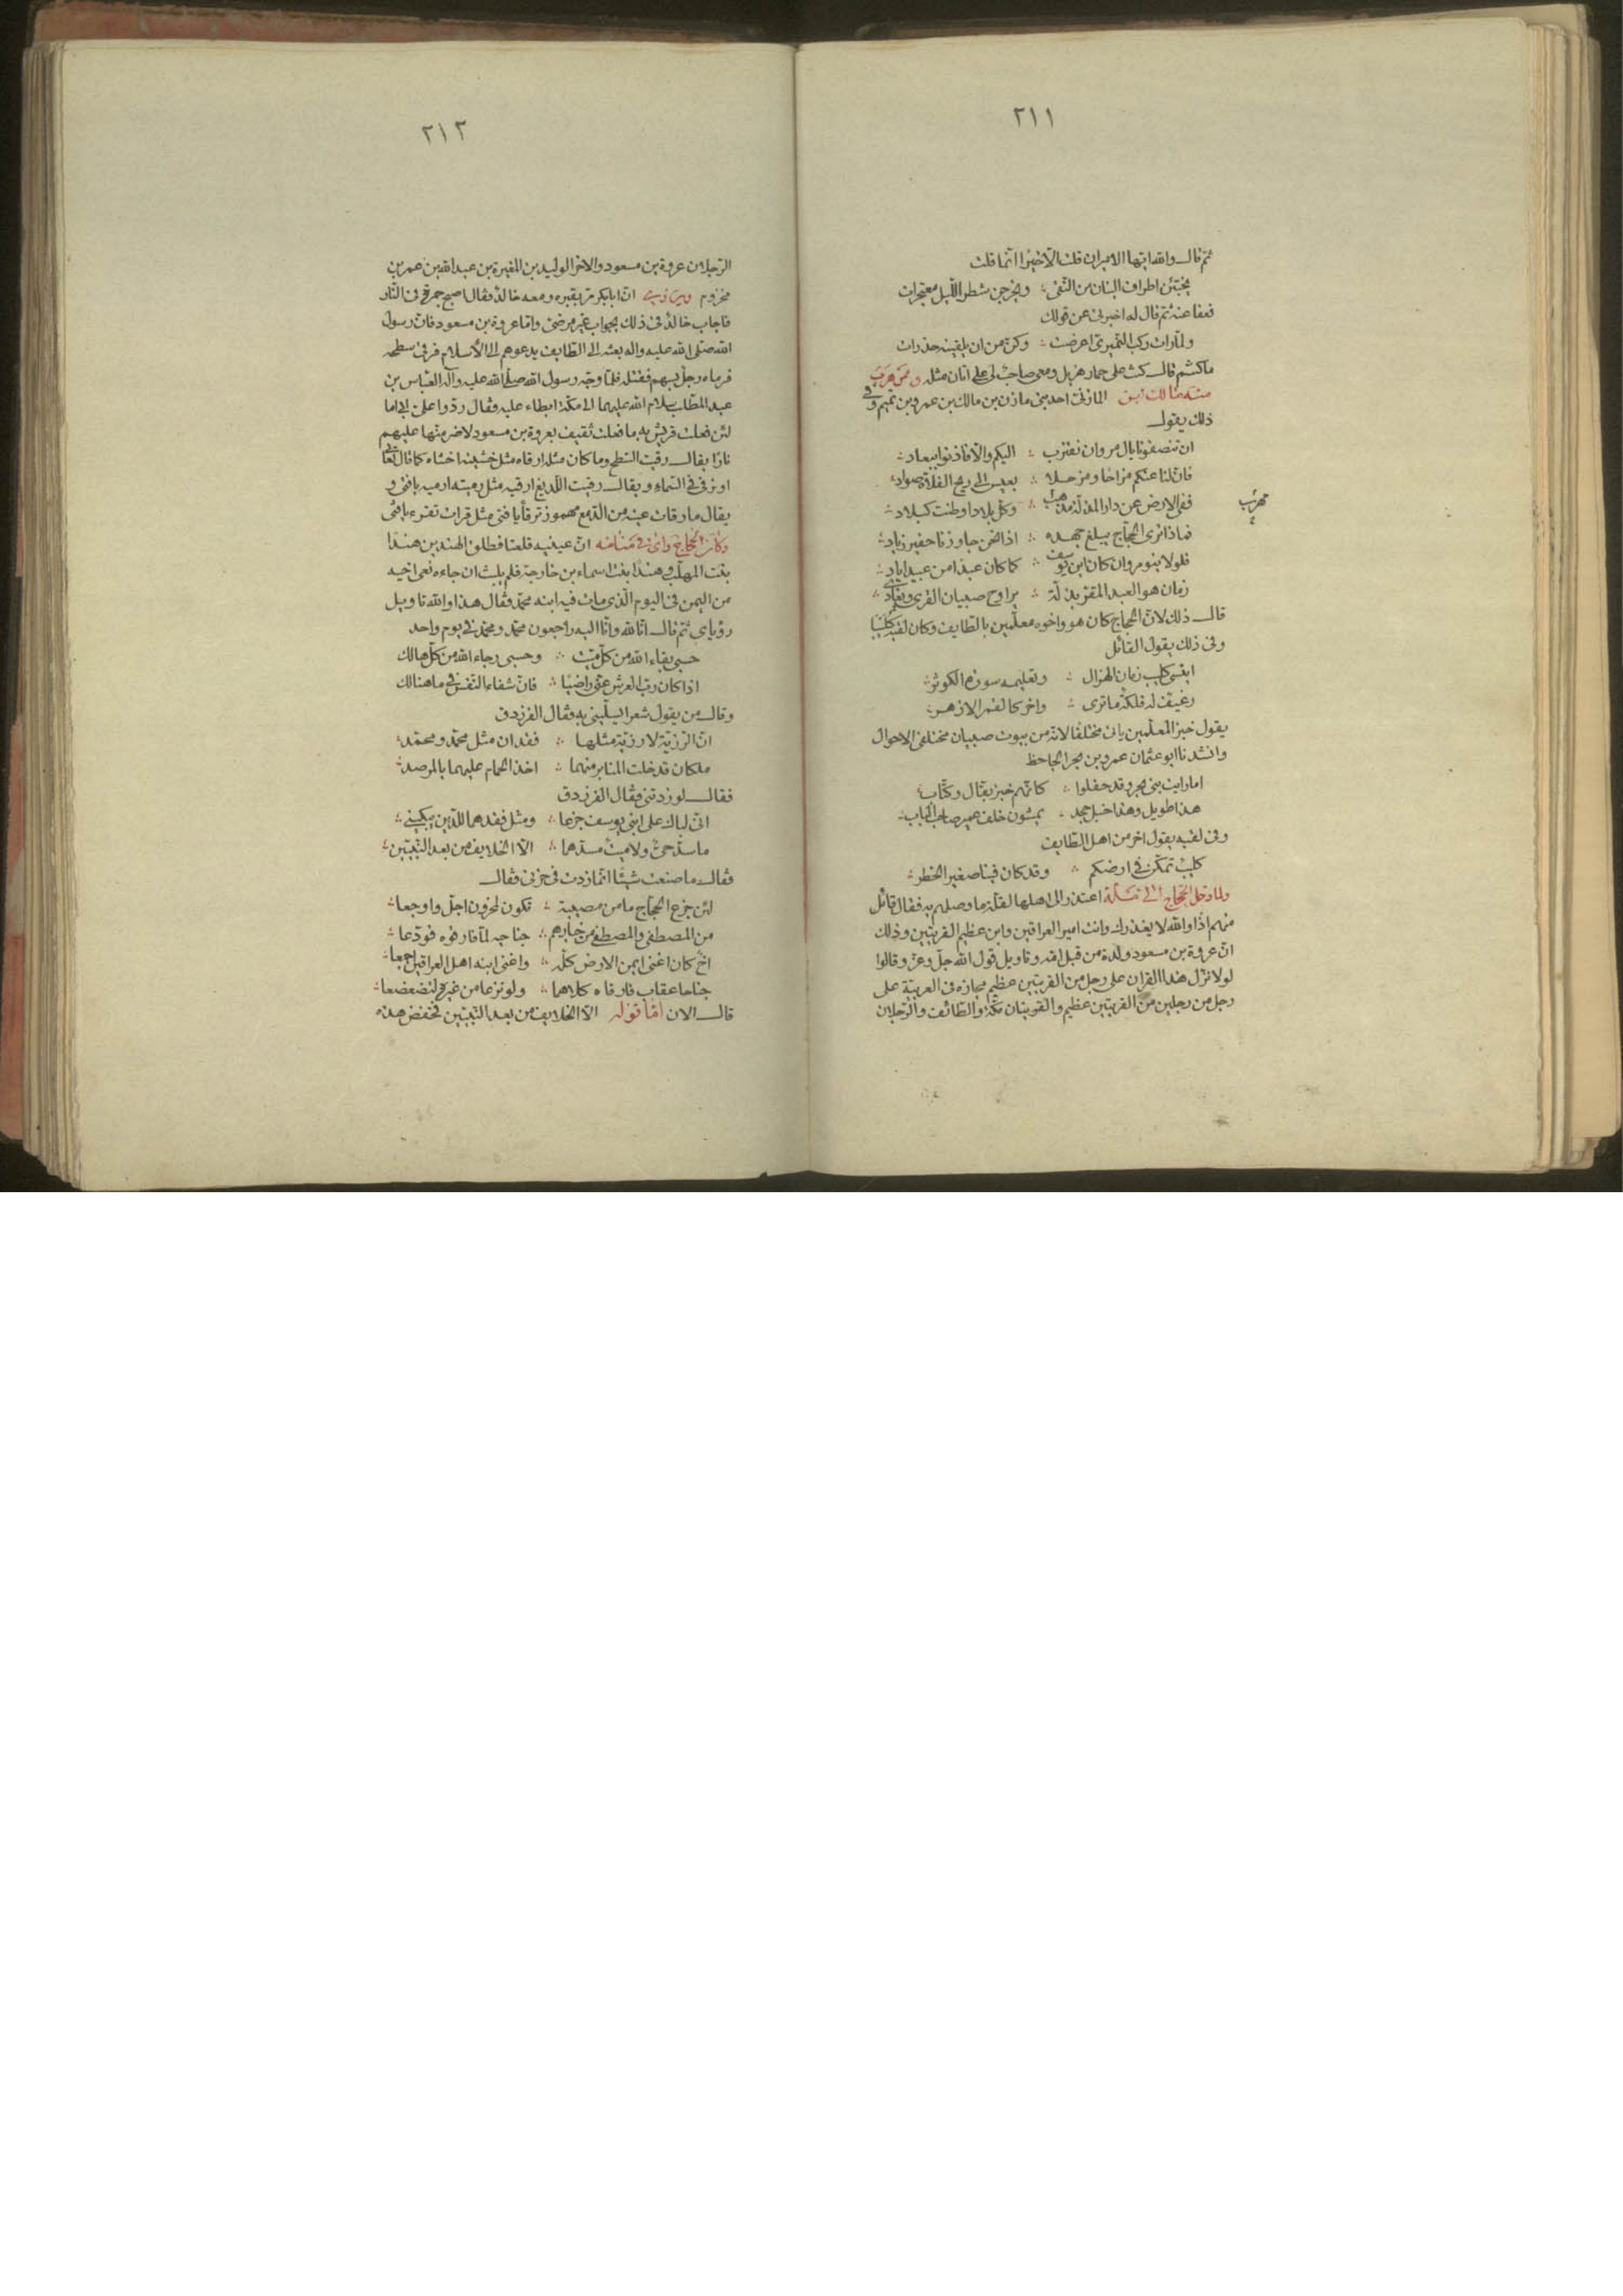 ٢١١
ثم قال والله ايها الامير ان قلت الا خيرا انما قلت
يخبئن اطراف البنان من التقى ؛ ويخرجن شطر الليل معتجرات
فعفا عنه ثم قال له اخبرني عن قولك
ولما رات ركب النميري اعرضت ؛ وكن من ان يلقينه حذرات
ما كنتم قال كنت على حمار هزيل ومعى صاحب لى على اتان مثله وممن هرب
منه مالك بن المازنى احد بنى مازن بن مالك بن عمرو بن تميم وفى
ذلك يقول
ان تنصفونا يال مروان نقترب ؛ اليكم والا فاذنوا ببعاد
فان لنا عنكم مزاحا ومزحلا ؛ بعيس الى ريح الفلاة صواد
ففى الارض عن دار المذلة مذهب ؛ وكل بلاد اوطنت كبلاد
مهرب
فماذا ترى الحجاج يبلغ جهده ؛ اذا نحن جاوزنا حفير زياد
فلولا بنو مروان كان ابن يوسف ؛ كما كان عبدا من عبيد اياد
زمان هو العبد المقر بذلة ؛ يراوح صبيان القرى ويغادى
قال ذلك لان الحجاج كان هو واخوه معلمين بالطايف وكان لقبه كليبا
وفى ذلك يقول القائل
اينسى كليب زمان الهزال ؛ وتعليمه سورة الكوثر
رغيف له فلكة ما ترى ؛ واخر كالقمر الازهر
يقول خبز المعلمين ياتى مختلفا لانه من بيوت صبيان مختلفى الاحوال
وانشدنا ابو عثمان عمرو بن بحر الجاحظ
اما رايت بنى بحر وقد حفلوا ؛ كانهم خبز بقال وكتاب
هذا طويل وهذا حنبل جحد ؛ يمشون خلف عمير صاحب الباب
وفى لقبه يقول اخر من اهل الطايف
كليب تمكن فى ارضكم ؛ وقد كان فينا صغير الخطر
ولما دخل الحجاج الى مكة اعتذر الى اهلها لقلة ما وصلهم به فقال قائل
منهم اذا والله لا يعذرك وانت امير العراقين وابن عظيم القريتين وذلك
ان عروة بن مسعود ولدة من قبل امه وتاويل قول الله جل وعز وقالوا
لولا نزل هذا القران على رجل من القريتين عظيم مجازه فى العربية على
رجل من رجلين من القريتين عظيم والقريتان مكة والطائف والرجلان
٢١٢
الرجلان عروة بن مسعود والاخر الوليد بن المغيرة بن عبد الله بن عمر بن
مخزوم ان ابا بكر مر بقبره ومعه خالد فقال اصبح جمرة فى النار
فاجاب خالد فى ذلك بجواب غير مرضى واما عروة بن مسعود فان رسول
الله صلى الله عليه واله بعثه الى الطايف يدعوهم الى الاسلام فرقى سطحه
فرماه رجل بسهم فقتله فلما وجه رسول الله صلى الله عليه وآله العباس بن
عبد المطلب سلام الله عليهما الى مكة ابطاء عليه وقال ردوا على ابى اما
لئن فعلت قريش به ما فعلت ثقيف بعروة بن مسعود لاضرمنها عليهم
نارا يقال رقيت السطح وما كان مثله ارقاه مثل خشيته اخشاه كما قال تعالى
او ترقى فى السماء ويقال رقيت اللديغ ارقيه مثل رميته ارميه يا فتى و
يقال ما رقات عينه من الدمع مهموز ترقأ يا فتى مثل قرات تقرء يا فتى
وكان الحجاج رأى فى منامه ان عينيه قلعتا فطلق الهندين هندا
بنت المهلب وهندا بنت اسماء بن خارجة فلم يلبث ان جاءه نعى اخيه
من اليمن فى اليوم الذى مات فيه ابنه محمد فقال هذا والله تاويل
رؤياى ثم قال انا لله وانا اليه راجعون محمد ومحمد فى يوم واحد
حسبى بقاء الله من كل ميت ؛ وحسبى رجاء الله من كل هالك
اذا كان رب العرش عنى راضيا ؛ فان شفاء النفس فى ما هنالك
وقال من يقول شعرا يسلينى به فقال الفرزدق
ان الرزية لا رزية مثلها ؛ فقدان مثل محمد ومحمد
ملكان قد خلت المنابر منهما ؛ اخذ الحمام عليهما بالمرصد
فقال لو زدتنى فقال الفرزدق
انى لباك على ابنى يوسف جزعا ؛ ومثل فقدهما للدين يبكينى
ما سد حى ولا ميت مسدهما ؛ الا الخلايف من بعد النبيين
فقال ما صنعت شيئا انما زدت فى حزنى فقال
لئن جزع الحجاج ما من مصيبة ؛ تكون لمحزون اجل واوجعا
من المصطفى والمصطفى من خيارهم ؛ جناحيه لما فارقوه فودعا
اخ كان اغنى ايمن الارض كله ؛ واغنى ابنه اهل العراقين اجمعا
جناحا عقاب فارقاه كلاهما ؛ ولو نزعا من غيره لتضعضعا
قال الان اما قوله الا الخلايف من بعد النبيين فخفض هذه